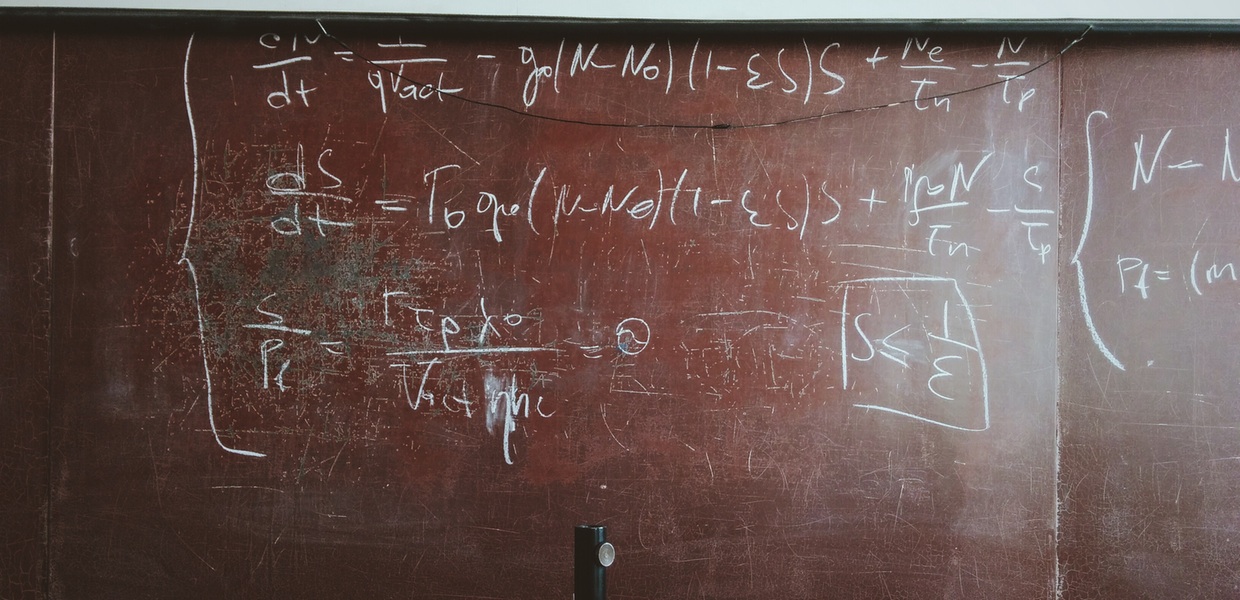 dN/dt = I/qVact - g0(N - N0)(1 - εS)S + Ne/τn - N/τp
dS/dt = Γ0 g0(N - N0)(1 - εS)S + N/τn - S/τp
S/Pf = Γτpλ0/Vact ηhc =
S ≤ 1/ε
N - N
Pf = (m